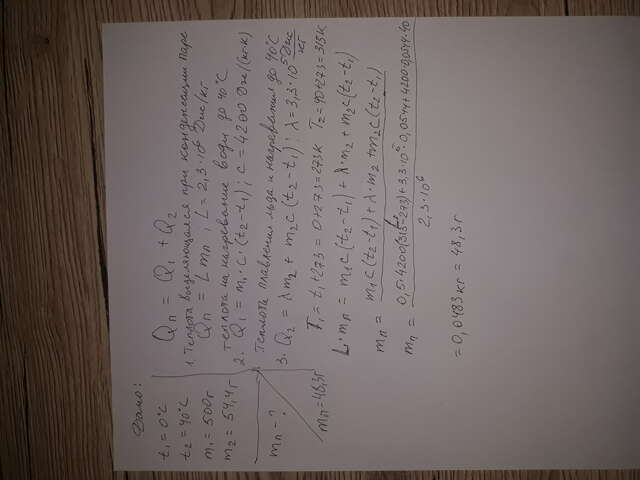 Дано:
t₁ = 0°C
t₂ = 40°C
m₁ = 500г
m₂ = 54,4г
mп - ?
mп = 48,3г
Qп = Q₁ + Q₂
1. Теплота выделяющаяся при конденсации паре
Qп = L mп , L = 2,3·10⁶ Дж/кг
теплота на нагревание воды до 40°C
2. Q₁ = m₁·c·(t₂-t₁) ; c = 4200 Дж/(кг·К)
Теплота плавления льда и нагревания до 40°C
3. Q₂ = λm₂ + m₂c(t₂-t₁) ; λ = 3,3·10⁵ Дж/кг
T₁ = t₁+273 = 0+273=273K T₂=40+273=313K
L·mп = m₁c(t₂-t₁) + λ·m₂ + m₂c(t₂-t₁)
mп = m₁c(t₂-t₁)+λ·m₂+m₂c(t₂-t₁) / L
mп = 0,5·4200(313-273)+3,3·10⁵·0,0544+4200·0,0544·40 / 2,3·10⁶
= 0,0483кг = 48,3г